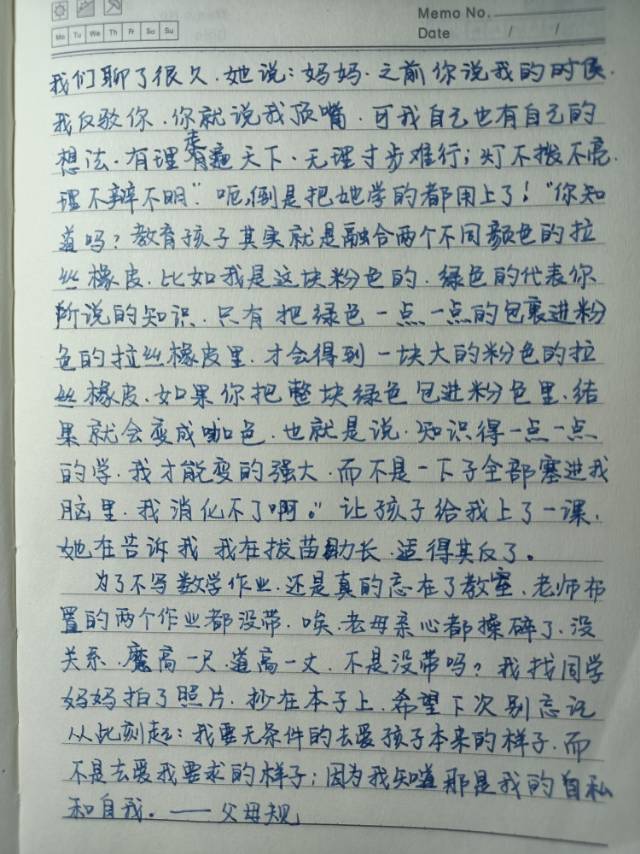 Memo No.
Mo Tu We Th Fr Sa Su
Date / /
我们聊了很久.她说:妈妈.之前你说我的时候.
我反驳你.你就说我顶嘴.可我自己也有自己的
想法.有理走遍天下.无理寸步难行;灯不拨不亮.
理不辩不明”呃,倒是把她学的都用上了!“你知
道吗?教育孩子其实就是融合两个不同颜色的拉
丝橡皮.比如我是这块粉色的.绿色的代表你
所说的知识.只有把绿色一点一点的包裹进粉
色的拉丝橡皮里.才会得到一块大的粉色的拉
丝橡皮.如果你把整块绿色包进粉色里.结
果就会变成咖色.也就是说.知识得一点一点
的学.我才能变的强大.而不是一下子全部塞进我
脑里.我消化不了啊。”让孩子给我上了一课.
她在告诉我 我在拔苗助长.适得其反了。
为了不写数学作业.还是真的忘在了教室.老师布
置的两个作业都没带.唉.老母亲心都操碎了.没
关系.魔高一尺.道高一丈.不是没带吗?我找同学
妈妈拍了照片.抄在本子上.希望下次别忘记
从此刻起:我要无条件的去爱孩子本来的样子.而
不是去爱我要求的样子;因为我知道那是我的自私
和自我。——父母规